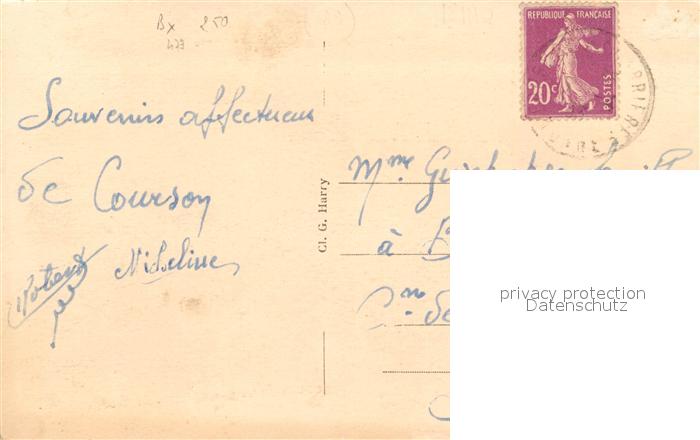 Bx 250
Souvenirs affectueux
de Courson
Robert Micheline
Cl. G. Harry
REPUBLIQUE FRANÇAISE
20c
POSTES
Mme
à
de
privacy protection
Datenschutz